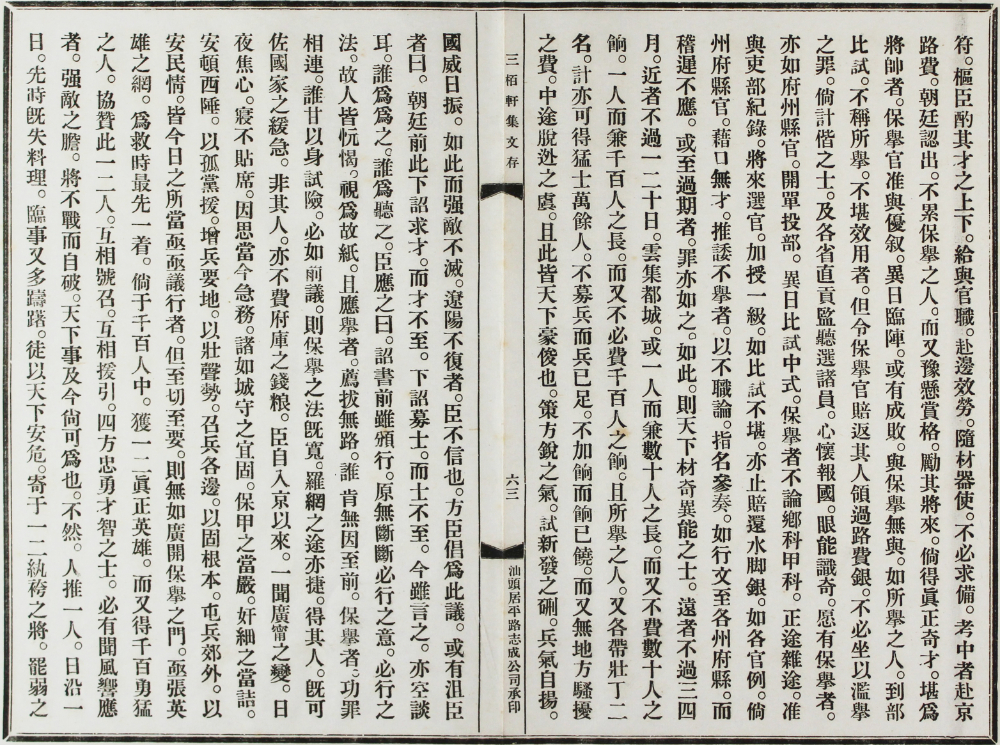 符。樞臣酌其才之上下。給與官職。赴邊效勞。隨材器使。不必求備。考中者赴京
路費。朝廷認出。不累保擧之人。而又豫懸賞格。勵其將來。倘得眞正奇才。堪爲
將帥者。保擧官准與優叙。異日臨陣。或有成敗。與保擧無與。如所擧之人。到部
比試。不稱所擧。不堪效用者。但令保擧官賠返其人領過路費銀。不必坐以濫擧
之罪。倘計偕之士。及各省直貢監聽選諸員。心懷報國。眼能識奇。愿有保擧者。
亦如府州縣官。開單投部。異日比試中式。保擧者不論鄉科甲科。正途雜途。准
與吏部紀錄。將來選官。加授一級。如比試不堪。亦止賠還水脚銀。如各官例。倘
州府縣官。藉口無才。推諉不擧者。以不職論。指名參奏。如行文至各州府縣。而
稽遲不應。或至過期者。罪亦如之。如此。則天下材奇異能之士。遠者不過三四
月。近者不過一二十日。雲集都城。或一人而兼數十人之長。而又不費數十人之
餉。一人而兼千百人之長。而又不必費千百人之餉。且所擧之人。又各帶壯丁二
名。計亦可得猛士萬餘人。不募兵而兵已足。不加餉而餉已饒。而又無地方騷擾
之費。中途脫迯之虞。且此皆天下豪俊也。策方銳之氣。試新發之硎。兵氣自揚。
三栢軒集文存
六三
汕頭居平路志成公司承印
國威日振。如此而强敵不滅。遼陽不復者。臣不信也。方臣倡爲此議。或有沮臣
者曰。朝廷前此下詔求才。而才不至。下詔募士。而士不至。今雖言之。亦空談
耳。誰爲爲之。誰爲聽之。臣應之曰。詔書前雖頒行。原無斷斷必行之意。必行之
法。故人皆玩愒。視爲故紙。且應擧者。薦拔無路。誰肯無因至前。保擧者。功罪
相連。誰甘以身試險。必如前議。則保擧之法旣寬。羅網之途亦捷。得其人。旣可
佐國家之緩急。非其人。亦不費府庫之錢粮。臣自入京以來。一聞廣甯之變。日
夜焦心。寢不貼席。因思當今急務。諸如城守之宜固。保甲之當嚴。奸細之當詰。
安頓西陲。以孤黨援。增兵要地。以壯聲勢。召兵各邊。以固根本。屯兵郊外。以
安民情。皆今日之所當亟亟議行者。但至切至要。則無如廣開保擧之門。亟張英
雄之網。爲救時最先一着。倘于千百人中。獲一二眞正英雄。而又得千百勇猛
之人。協贊此一二人。互相號召。互相援引。四方忠勇才智之士。必有聞風響應
者。强敵之膽。將不戰而自破。天下事及今尙可爲也。不然。人推一人。日沿一
日。先時旣失料理。臨事又多躊躇。徒以天下安危。寄于一二紈袴之將。罷弱之